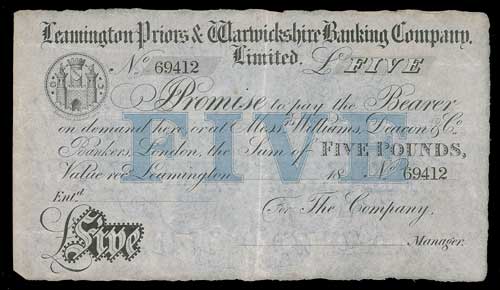 Leamington Priors & Warwickshire Banking Company.
Limited.
No 69412 £ FIVE
I Promise to pay the Bearer
on demand here, or at Messrs Williams, Deacon & Co.
Bankers, London, the Sum of FIVE POUNDS,
Value recd Leamington 18 No 69412
FIVE
Entd
For The Company.
Five
Manager.